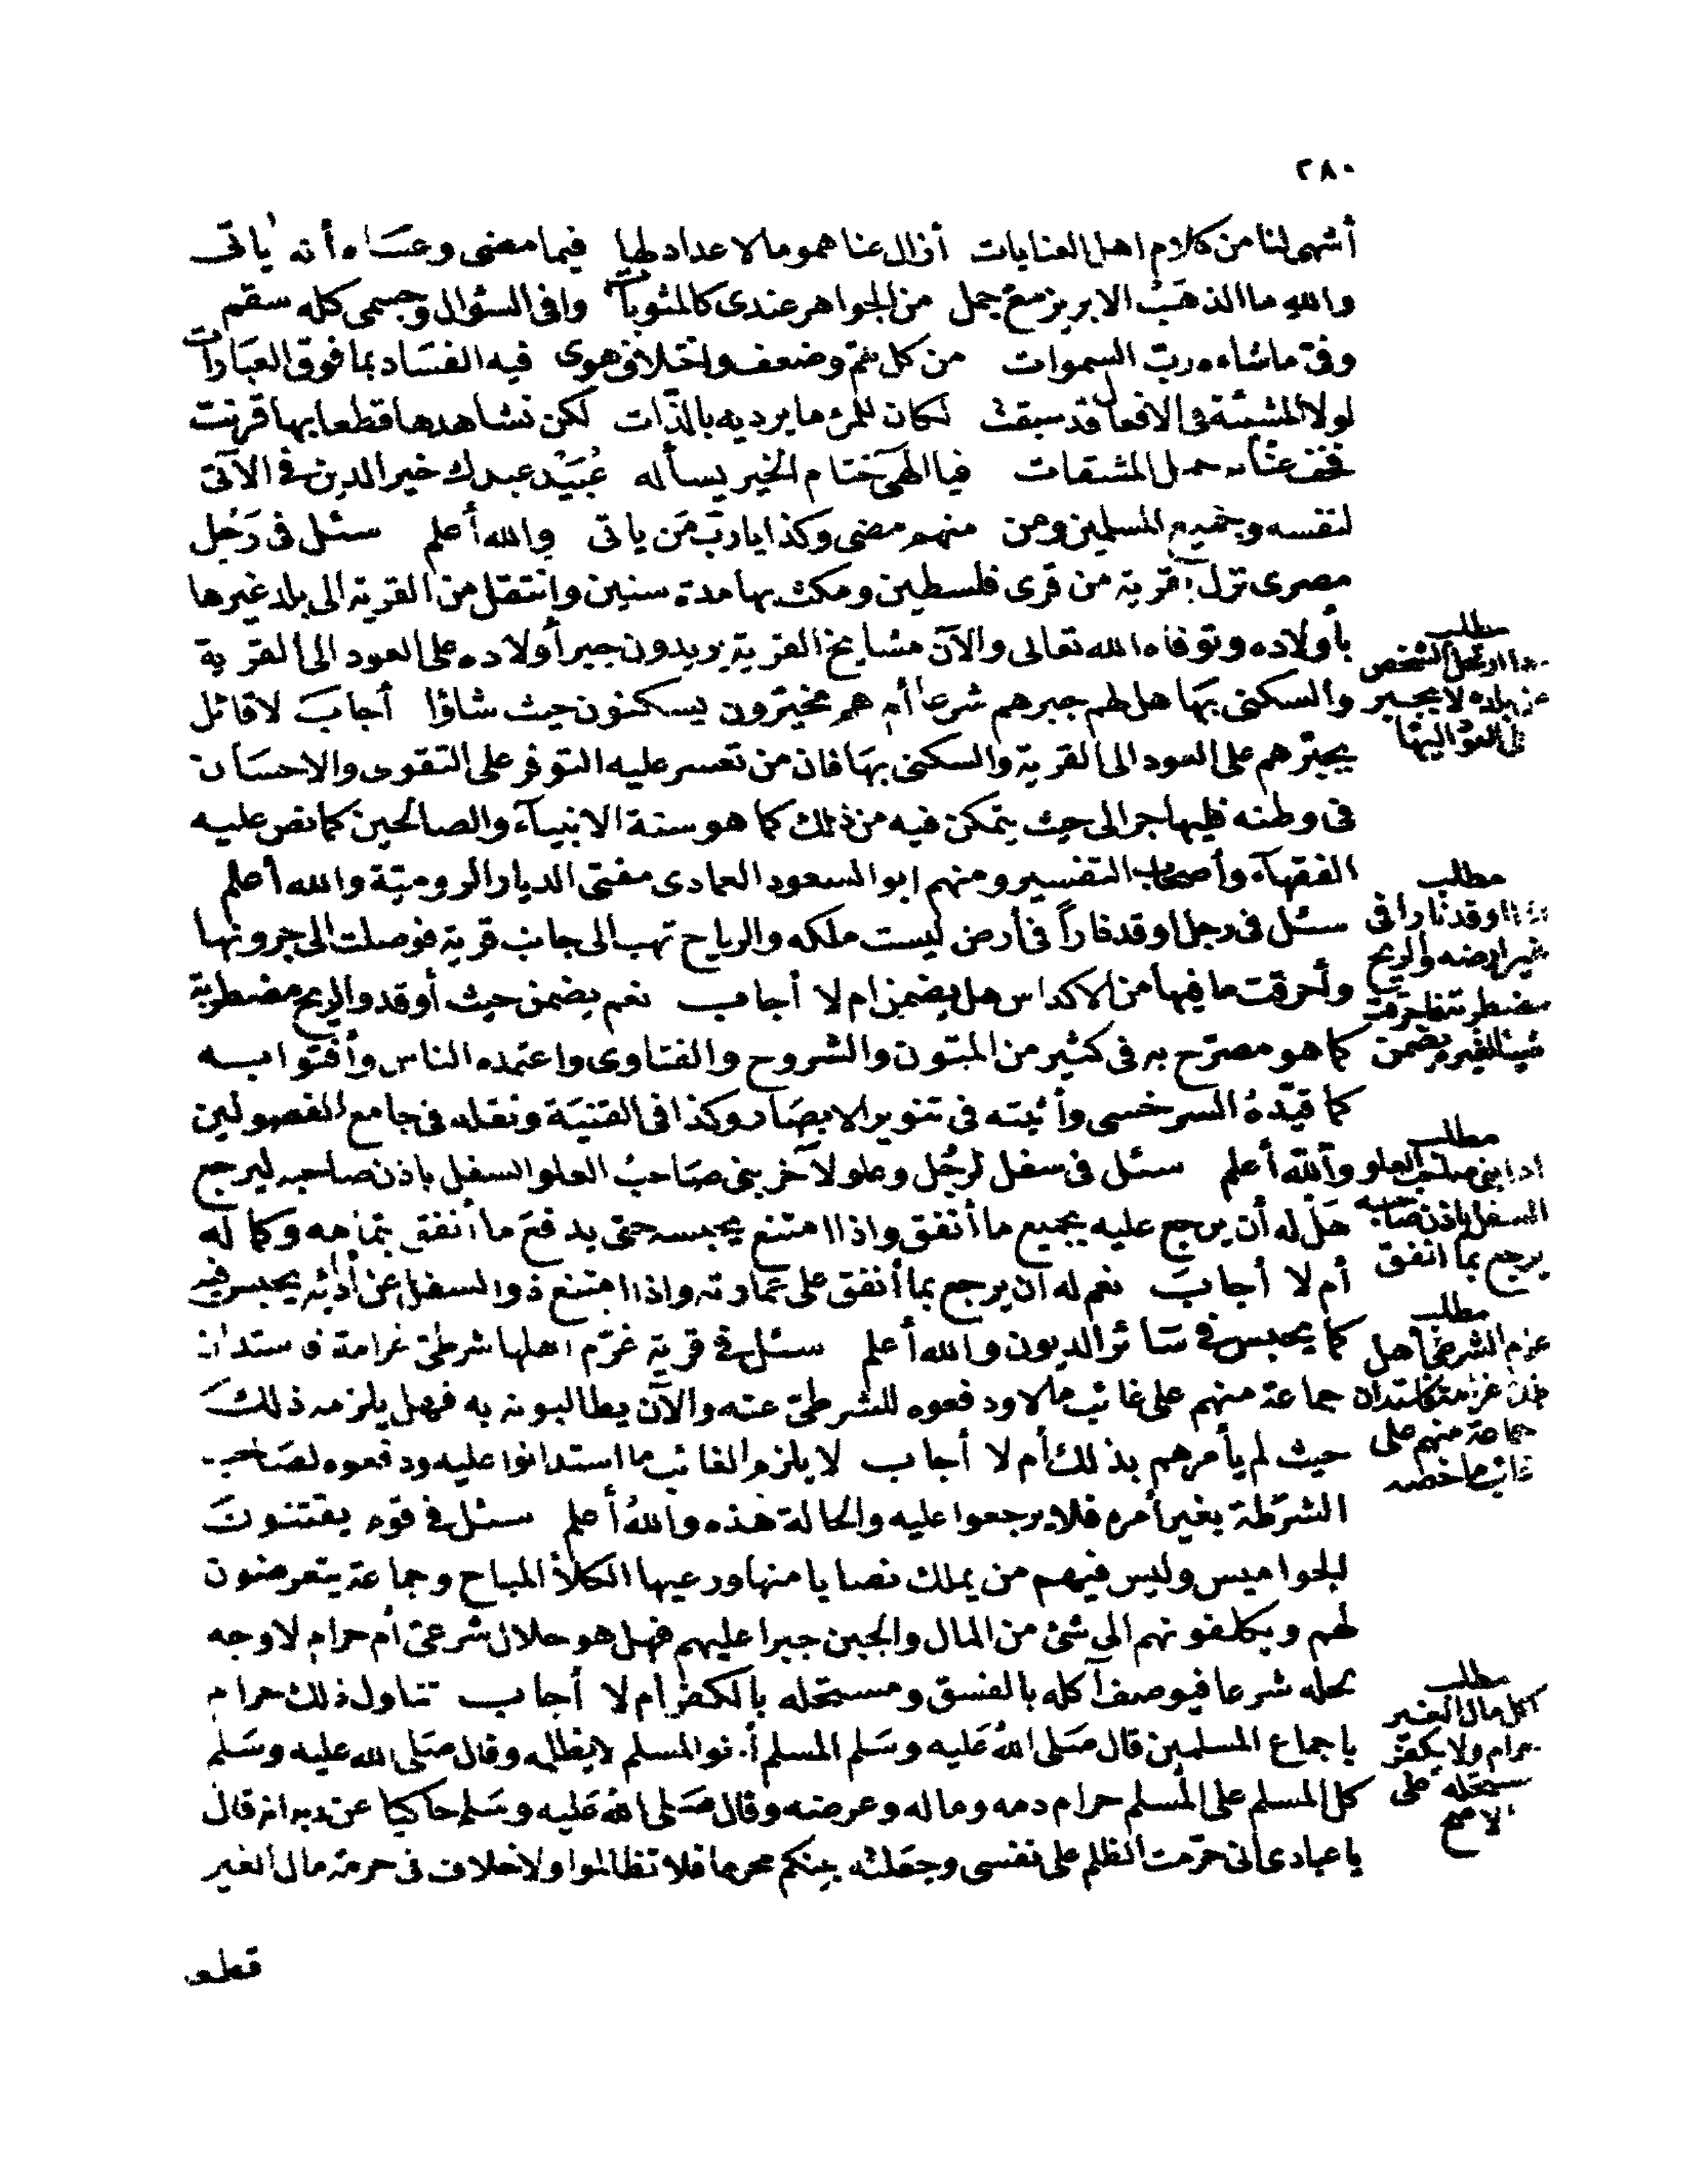 ٢٨٠
أشهى لنا من كلام اهل العنايات أزال عنا هموما لا عداد لها فيما مضى وعساه أنه ياتى
والله ما الذهب الابريز مع جمل من الجواهر عندى كالمثوبات وافى السئوال وجسمى كله سقم
وفق ماشاءه ربّ السموات من كل غم وضعف واختلاف هوى فيه الفساد بما فوق العبارات
لولا المشئة فى الافعال قد سبقت لكان للمرء ما يرديه بالذّات لكن نشاهدها قطعا بها قرنت
فخف عنا به حمل المشقات فيا الهى ختام الخير يسأله عُبَيْد عبدك خير الدين فى الآتى
لنفسه وجميع المسلمين ومن منهم مضى وكذا يا ربّ مَن ياتى والله أعلم سئل فى رَجُل
مصرى نزل بقرية من قرى فلسطين ومكث بها مدة سنين وانتقل من القرية الى بلد غيرها
بأولاده وتوفاه الله تعالى والآن مشايخ القرية يريدون جبر أولاده على العود الى القرية
والسكنى بها هل لهم جبرهم شرعا أم هم مخيّرون يسكنون حيث شاؤا أجابَ لا قائل
يجبرهم على العود الى القرية والسكنى بها فان من تعسر عليه التوفر على التقوى والاحسان
فى وطنه فليهاجر الى حيث يتمكن فيه من ذلك كما هو سنة الانبياء والصالحين كما نص عليه
الفقهاء وأصحاب التفسير ومنهم ابو السعود العمادى مفتى الديار الروميّة والله أعلم
سئل فى رجل اوقد ناراً فى أرض ليست ملكه والرياح تهب الى جانب قرية فوصلت الى جرونها
وأحرقت ما فيها من الاكداس هل يضمن ام لا أجاب نعم يضمن حيث أوقد والريح مضطربة
كما هو مصرّح به فى كثير من المتون والشروح والفتاوى واعتمده الناس وأفتوا به
كما قيّدهُ السرخسى وأثبته فى تنوير الابصار وكذا فى القنية ونقله فى جامع الفصولين
والله أعلم سئل فى سفل لرجُل وعلو لآخر بنى صاحبُ العلو السفل باذن صاحبه ليرجع
هل له أن يرجع عليه بجميع ما أنفق واذا امتنع يحبسه حتى يدفع ما أنفق بتمامه وكماله
أم لا أجابَ نعم له ان يرجع بما أنفق على عمارته واذا امتنع ذو السفل عن أدائه يحبس فيه
كما يحبس فى سائر الديون والله أعلم سئل فى قرية غرّم اهلها شرطىّ غرامة فاستدان
جماعة منهم على غائب مالا ودفعوه للشرطىّ عنه والآن يطالبونه به فهل يلزمه ذلك
حيث لم يأمرهم بذلك أم لا أجاب لا يلزم الغائب ما استدانوا عليه ودفعوه لصاحب
الشرطة بغير أمره فلا يرجعوا عليه والحالة هذه واللهُ أعلم سئل فى قوم يقتنون
الجواميس وليس فيهم من يملك نصابا منها ورعيها الكلأ المباح وجماعة يتعرضون
لهم ويكلفونهم الى شئ من المال والجبن جبرا عليهم فهل هو حلال شرعىّ أم حرام لا وجه
لحله شرعا فيوصف آكله بالفسق ومستحله بالكفر ام لا أجاب تناول ذلك حرام
باجماع المسلمين قال صلى اللهُ عليه وسلم المسلم أخو المسلم لا يظلمه وقال صلى الله عليه وسَلم
كل المسلم على المُسلم حرام دمه وماله وعرضه وقال صلى اللهُ عليه وسلم حاكيا عن ربه انه قال
يا عبادى انى حرّمت الظلم على نفسى وجعلته بينكم محرما فلا تظالموا ولا خلاف فى حرمة مال الغير
قطعا
مطلب
اذا ارتحل الشخص
عن بلده لا يجبر
على العود اليها
مطلب
اذا اوقد نارا فى
غير ارضه والريح
مضطربة فاحرقت
شيئا لغيره يضمن
مطلب
اذا بنى صاحب العلو
السفل باذن صاحبه
يرجع بما انفق
مطلب
غرم الشرطى أهل
غرامة فاستدان
جماعة منهم على
غائب ما خصه
مطلب
اكل مال الغير
حرام ولا يكفر
مستحله على
الاصح